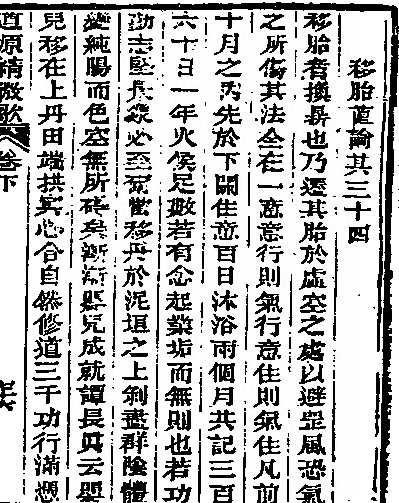 移胎直論其三十四
移胎者換鼎也乃遷其胎於虛空之處以避罡風恐氣
之所傷其法全在一意意行則氣行意住則氣住凡前
十月之內先於下關住意百日沐浴兩個月共記三百
六十日一年火候足數若有念起業垢而無則也若功
勤志堅長必至當移丹於泥垣之上剝盡群陰體
變純陽而色空無所碍矣漸漸嬰兒成就譚長真云嬰
兒移在上丹田端拱冥心合自然修道三千功行滿憑
道原精微歌 卷下